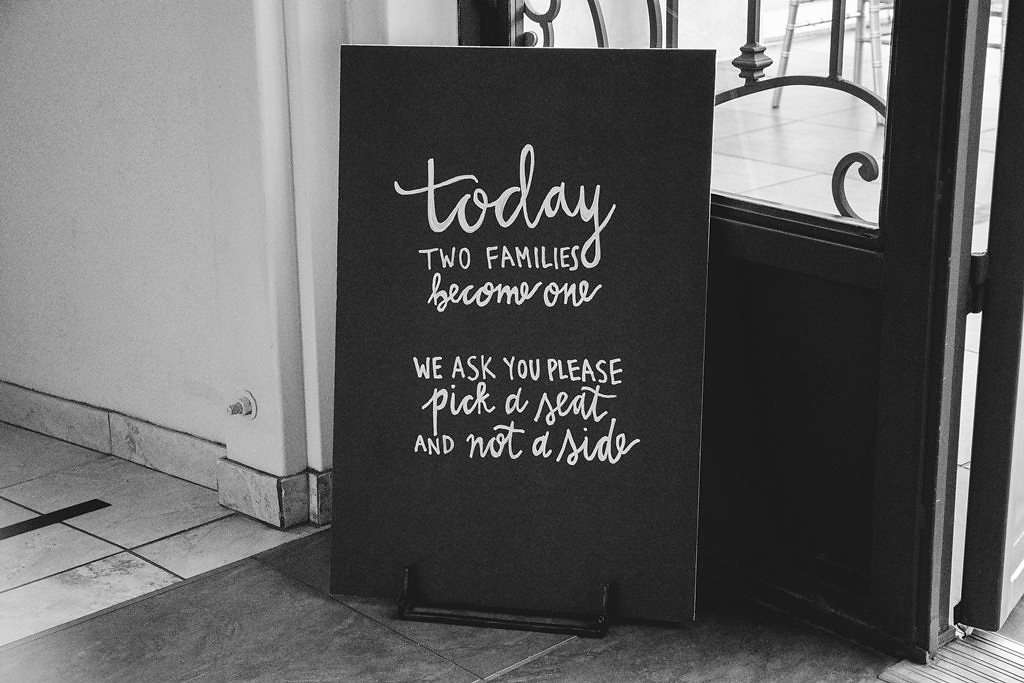 today
TWO FAMILIES
become one
WE ASK YOU PLEASE
pick a seat
AND not a side